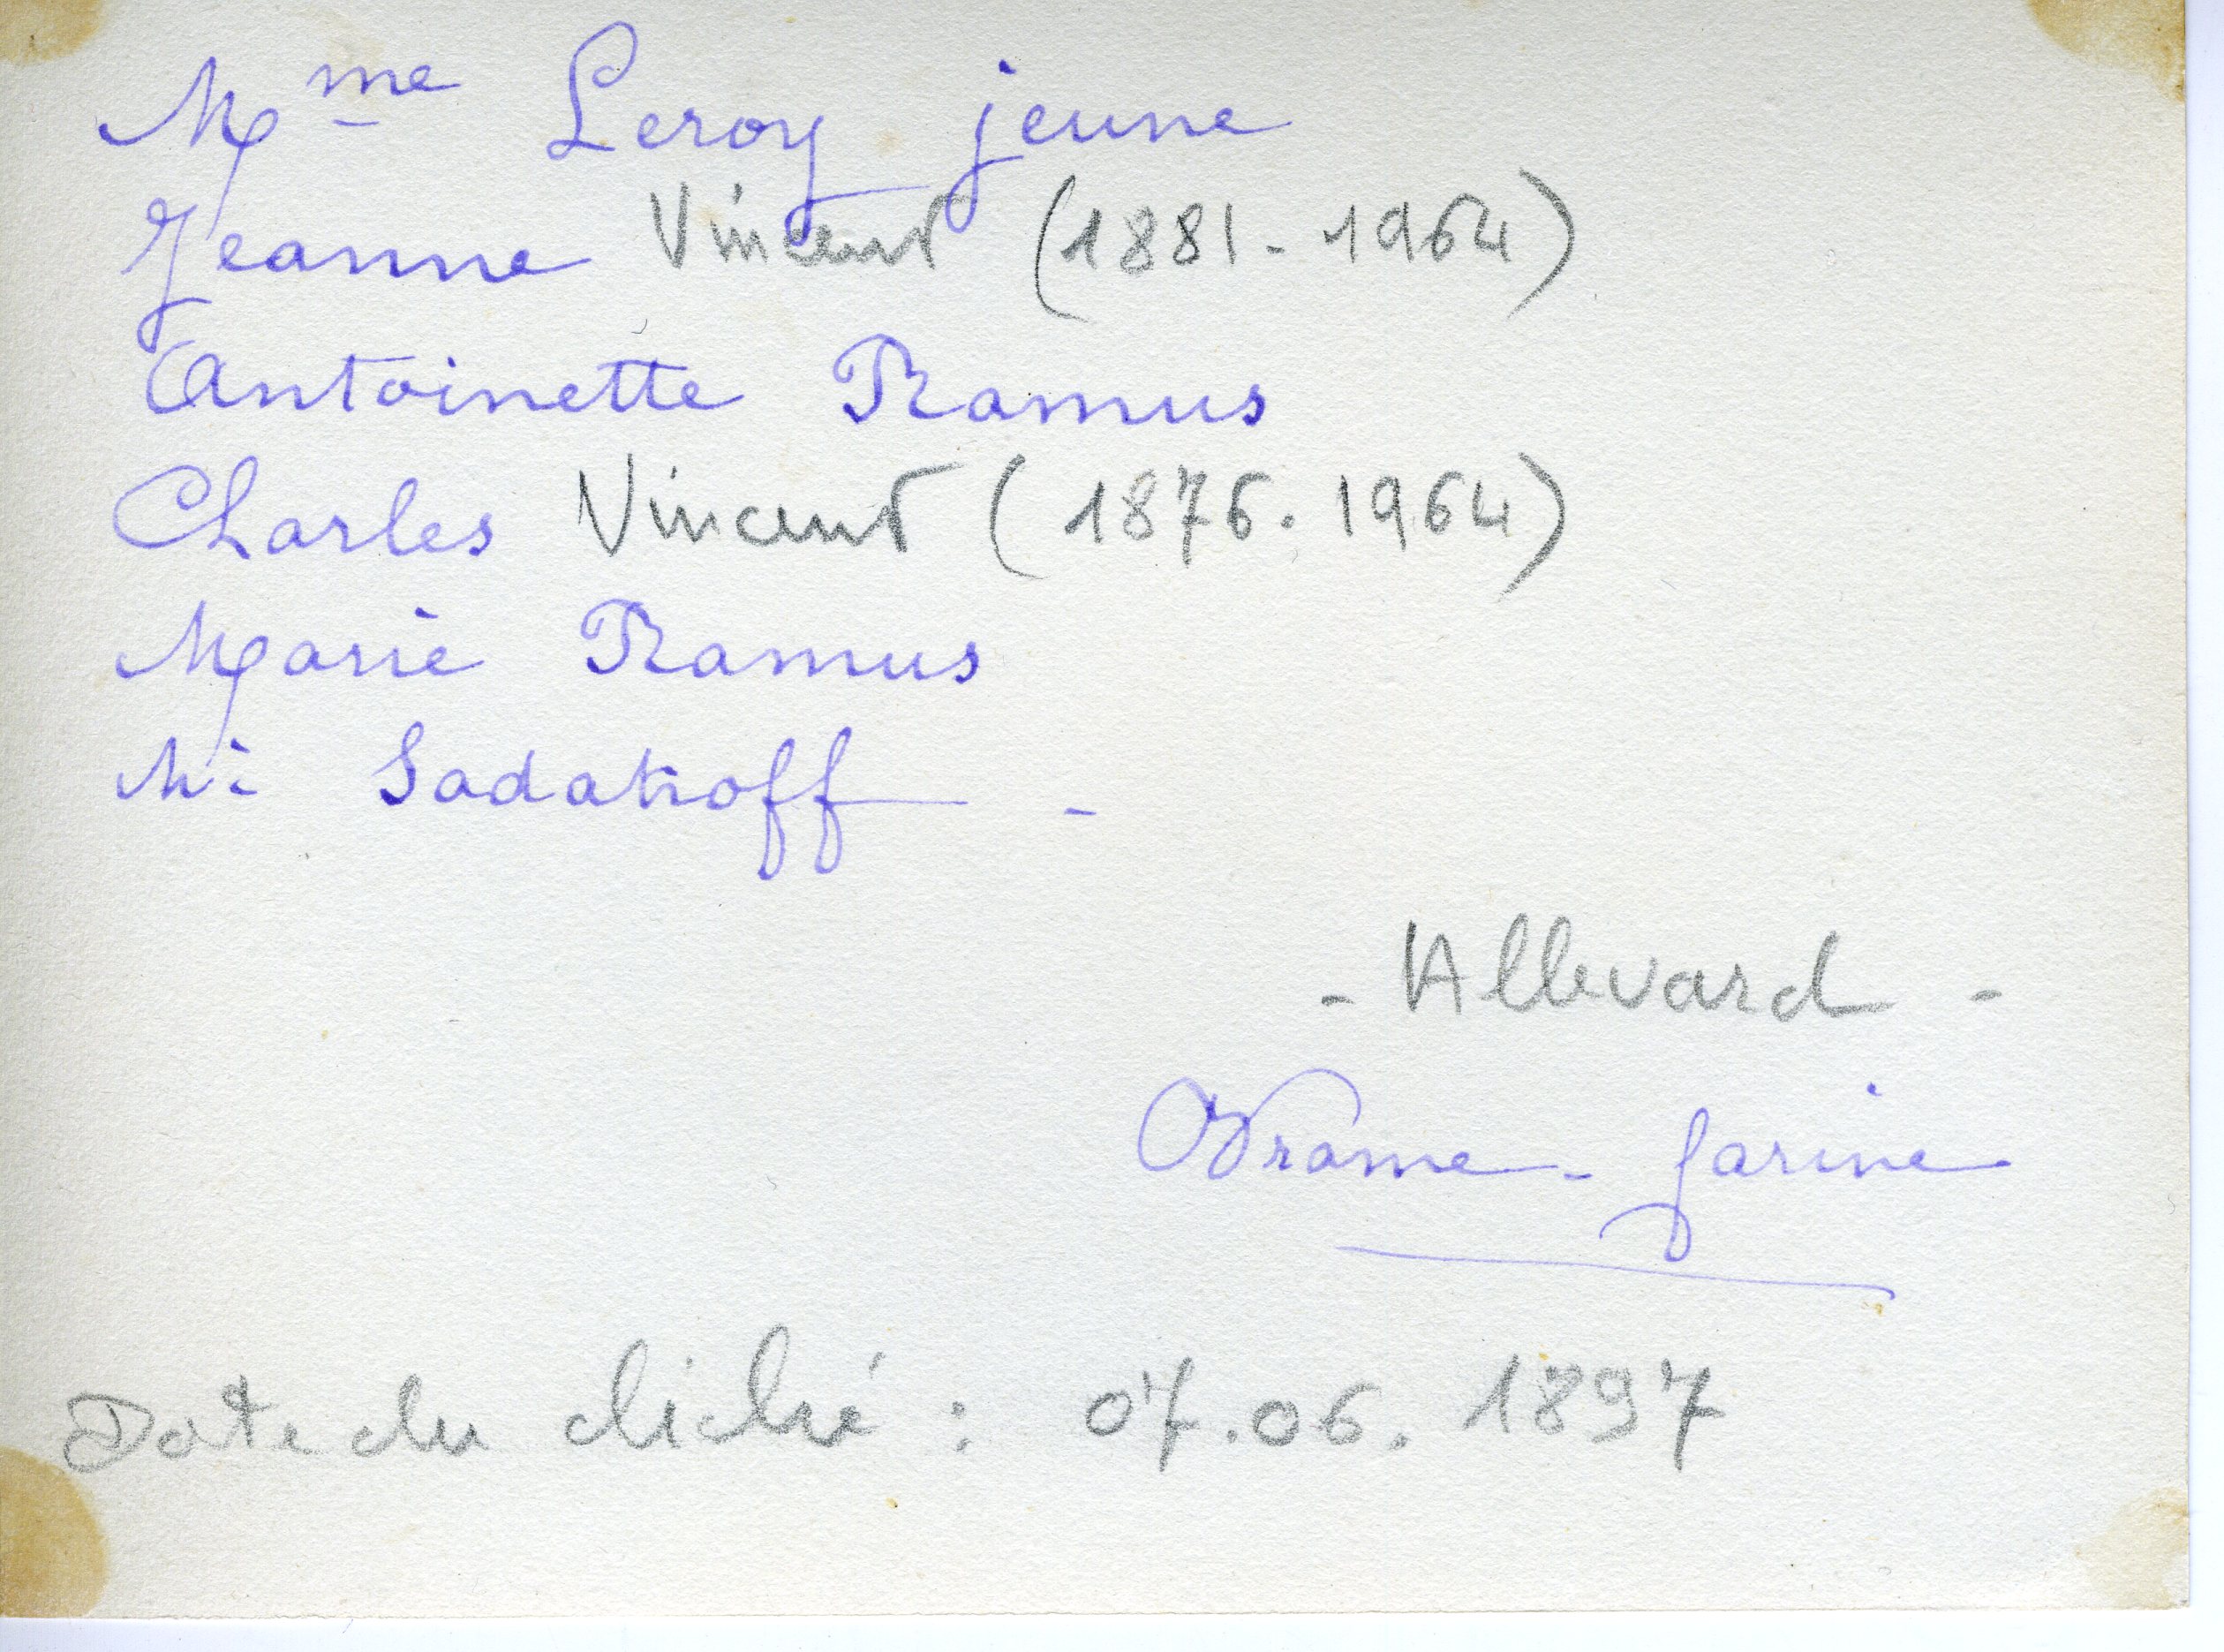 Mme Leroy jeune
Jeanne Vincent (1881-1964)
Antoinette Ramus
Charles Vincent (1876.1964)
Marie Ramus
Mr Sadakoff -
- Allevard -
Brame-farine
Date du cliché : 07.06.1897